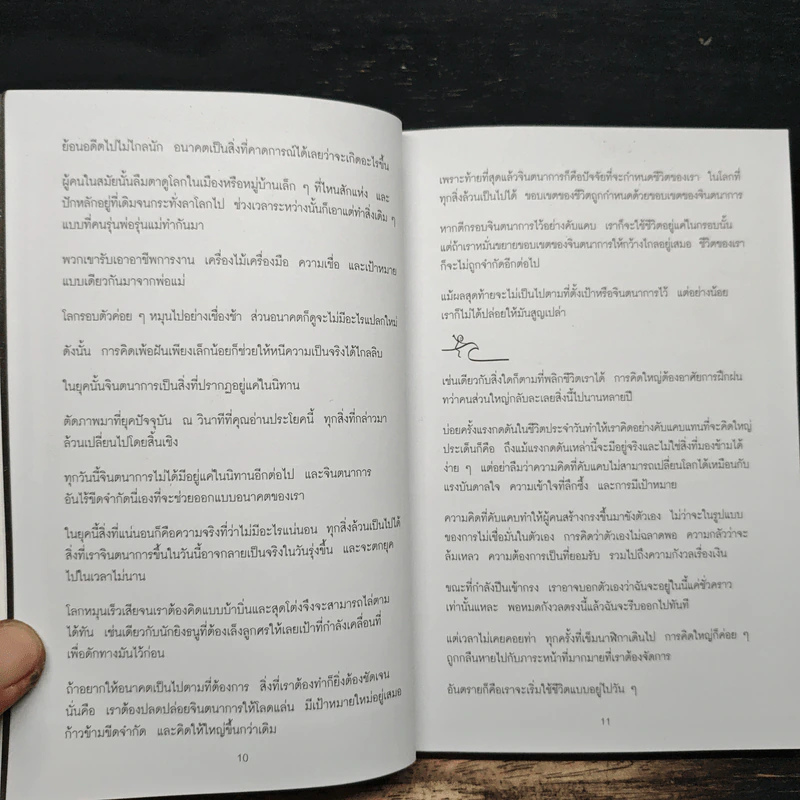 ย้อนอดีตไปไม่ไกลนัก อนาคตเป็นสิ่งที่คาดการณ์ได้เลยว่าจะเกิดอะไรขึ้น
ผู้คนในสมัยนั้นลืมตาดูโลกในเมืองหรือหมู่บ้านเล็ก ๆ ที่ไหนสักแห่ง และ
ปักหลักอยู่ที่เดิมจนกระทั่งลาโลกไป ช่วงเวลาระหว่างนั้นก็เอาแต่ทำสิ่งเดิม ๆ
แบบที่คนรุ่นพ่อรุ่นแม่ทำกันมา
พวกเขารับเอาอาชีพการงาน เครื่องไม้เครื่องมือ ความเชื่อ และเป้าหมาย
แบบเดียวกันมาจากพ่อแม่
โลกรอบตัวค่อย ๆ หมุนไปอย่างเชื่องช้า ส่วนอนาคตก็ดูจะไม่มีอะไรแปลกใหม่
ดังนั้น การคิดเพ้อฝันเพียงเล็กน้อยก็ช่วยให้หนีความเป็นจริงได้ไกลลิบ
ในยุคนั้นจินตนาการเป็นสิ่งที่ปรากฏอยู่แค่ในนิทาน
ตัดภาพมาที่ยุคปัจจุบัน ณ วินาทีที่คุณอ่านประโยคนี้ ทุกสิ่งที่กล่าวมา
ล้วนเปลี่ยนไปโดยสิ้นเชิง
ทุกวันนี้จินตนาการไม่ได้มีอยู่แค่ในนิทานอีกต่อไป และจินตนาการ
อันไร้ขีดจำกัดนี้เองที่จะช่วยออกแบบอนาคตของเรา
ในยุคนี้สิ่งที่แน่นอนก็คือความจริงที่ว่าไม่มีอะไรแน่นอน ทุกสิ่งล้วนเป็นไปได้
สิ่งที่เราจินตนาการขึ้นในวันนี้อาจกลายเป็นจริงในวันรุ่งขึ้น และจะตกยุค
ไปในเวลาไม่นาน
โลกหมุนเร็วเสียจนเราต้องคิดแบบบ้าบิ่นและสุดโต่งจึงจะสามารถไล่ตาม
ได้ทัน เช่นเดียวกับนักยิงธนูที่ต้องเล็งลูกศรให้เลยเป้าที่กำลังเคลื่อนที่
เพื่อดักทางมันไว้ก่อน
ถ้าอยากให้อนาคตเป็นไปตามที่ต้องการ สิ่งที่เราต้องทำก็ยิ่งต้องชัดเจน
นั่นคือ เราต้องปลดปล่อยจินตนาการให้โลดแล่น มีเป้าหมายใหม่อยู่เสมอ
ก้าวข้ามขีดจำกัด และคิดให้ใหญ่ขึ้นกว่าเดิม
10
เพราะท้ายที่สุดแล้วจินตนาการก็คือปัจจัยที่จะกำหนดชีวิตของเรา ในโลกที่
ทุกสิ่งล้วนเป็นไปได้ ขอบเขตของชีวิตถูกกำหนดด้วยขอบเขตของจินตนาการ
หากตีกรอบจินตนาการไว้อย่างคับแคบ เราก็จะใช้ชีวิตอยู่แค่ในกรอบนั้น
แต่ถ้าเราหมั่นขยายขอบเขตของจินตนาการให้กว้างไกลอยู่เสมอ ชีวิตของเรา
ก็จะไม่ถูกจำกัดอีกต่อไป
แม้ผลสุดท้ายจะไม่เป็นไปตามที่ตั้งเป้าหรือจินตนาการไว้ แต่อย่างน้อย
เราก็ไม่ได้ปล่อยให้มันสูญเปล่า
เช่นเดียวกับสิ่งใดก็ตามที่พลิกชีวิตเราได้ การคิดใหญ่ต้องอาศัยการฝึกฝน
ทว่าคนส่วนใหญ่กลับละเลยสิ่งนี้ไปนานหลายปี
บ่อยครั้งแรงกดดันในชีวิตประจำวันทำให้เราคิดอย่างคับแคบแทนที่จะคิดใหญ่
ประเด็นก็คือ ถึงแม้แรงกดดันเหล่านี้จะมีอยู่จริงและไม่ใช่สิ่งที่มองข้ามได้
ง่าย ๆ แต่อย่าลืมว่าความคิดที่คับแคบไม่สามารถเปลี่ยนโลกได้เหมือนกับ
แรงบันดาลใจ ความเข้าใจที่ลึกซึ้ง และการมีเป้าหมาย
ความคิดที่คับแคบทำให้ผู้คนสร้างกรงขึ้นมาขังตัวเอง ไม่ว่าจะในรูปแบบ
ของการไม่เชื่อมั่นในตัวเอง การคิดว่าตัวเองไม่ฉลาดพอ ความกลัวว่าจะ
ล้มเหลว ความต้องการเป็นที่ยอมรับ รวมไปถึงความกังวลเรื่องเงิน
ขณะที่กำลังปีนเข้ากรง เราอาจบอกตัวเองว่าฉันจะอยู่ในนี้แค่ชั่วคราว
เท่านั้นแหละ พอหมดกังวลตรงนี้แล้วฉันจะรีบออกไปทันที
แต่เวลาไม่เคยคอยท่า ทุกครั้งที่เข็มนาฬิกาเดินไป การคิดใหญ่ก็ค่อย ๆ
ถูกกลืนหายไปกับภาระหน้าที่มากมายที่เราต้องจัดการ
อันตรายก็คือเราจะเริ่มใช้ชีวิตแบบอยู่ไปวัน ๆ
11